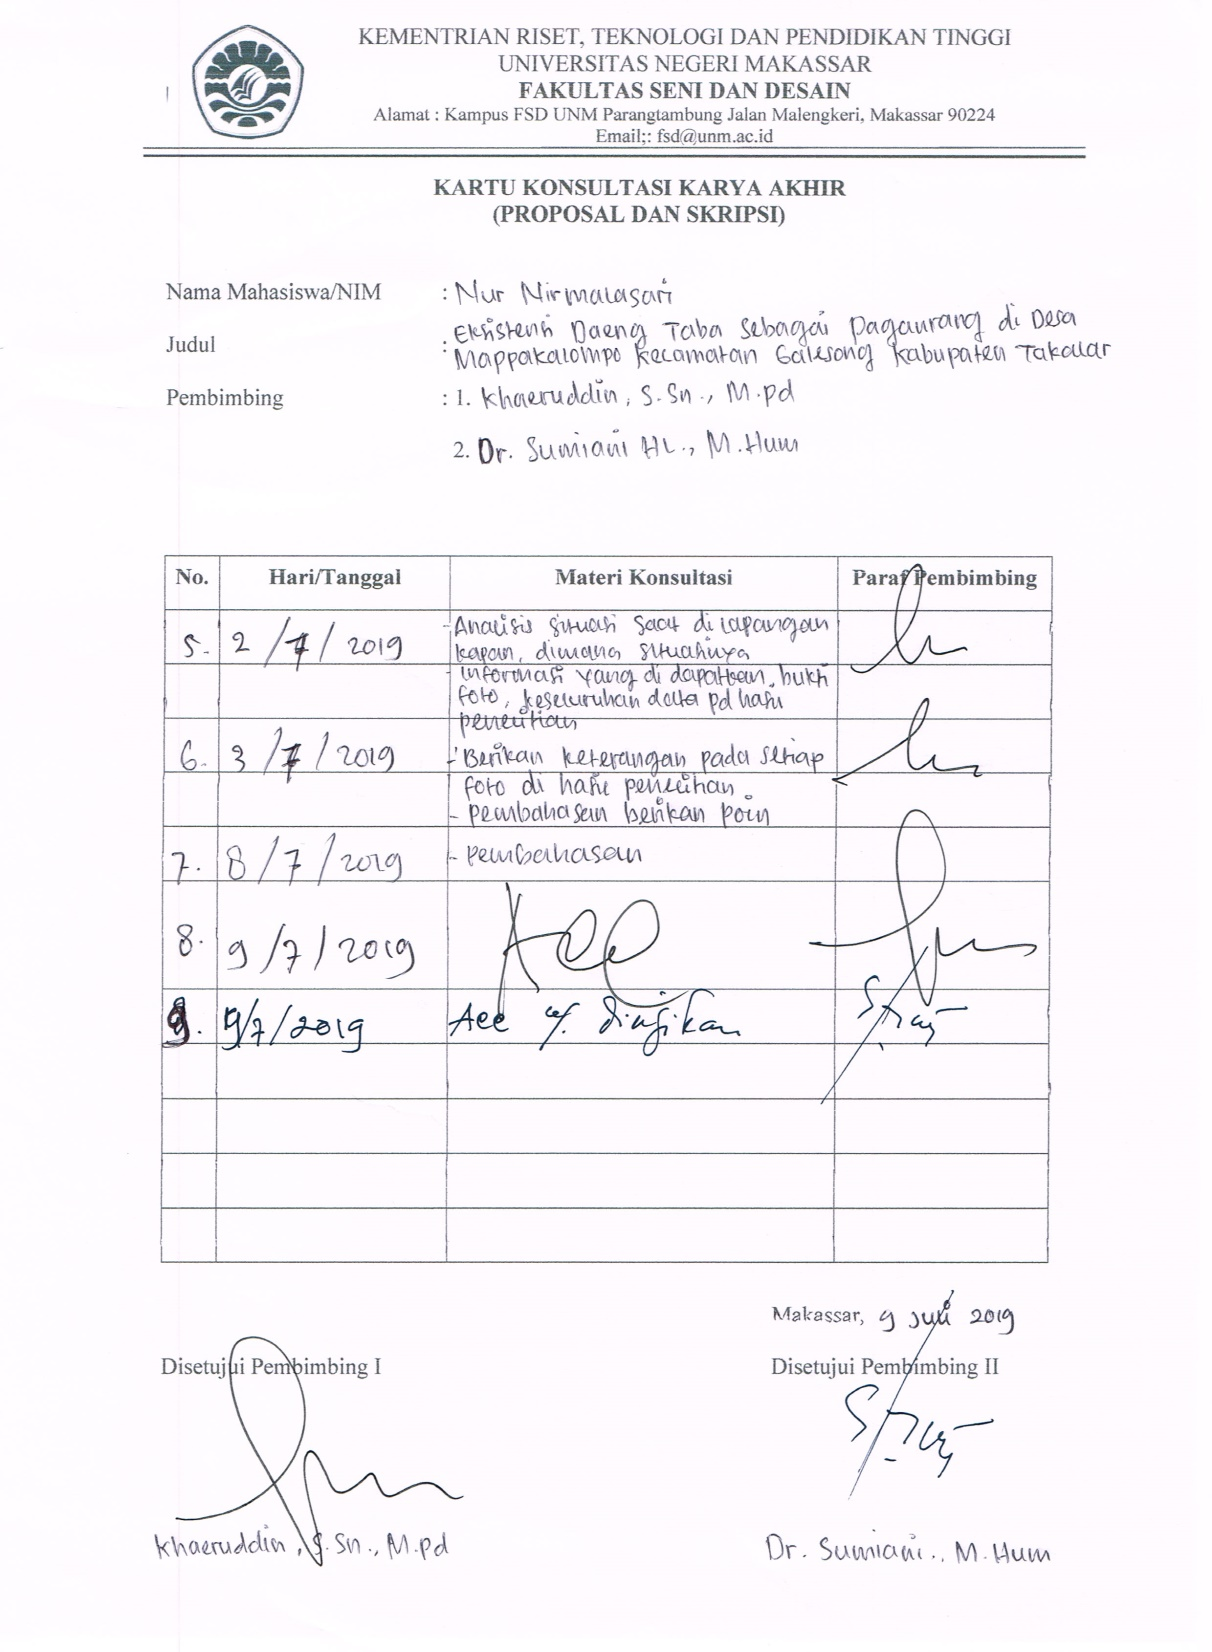 KEMENTRIAN RISET, TEKNOLOGI DAN PENDIDIKAN TINGGI
UNIVERSITAS NEGERI MAKASSAR
FAKULTAS SENI DAN DESAIN
Alamat : Kampus FSD UNM Parangtambung Jalan Malengkeri, Makassar 90224
Email;: fsd@unm.ac.id
KARTU KONSULTASI KARYA AKHIR
(PROPOSAL DAN SKRIPSI)
Nama Mahasiswa/NIM : Nur Nirmalasari
Judul : Eksistensi Daeng Taba Sebagai Pagaurang di Desa
Mappakalompo Kecamatan Galesong Kabupaten Takalar
Pembimbing : 1. Khaeruddin, S.Sn., M.Pd
2. Dr. Sumiani HL., M.Hum
No. Hari/Tanggal Materi Konsultasi Paraf Pembimbing
5. 2/7/2019 - Analisis situasi saat di lapangan
kapan, dimana situasinya
informasi yang di dapatkan, bukti
foto, keseluruhan data pd hasil
penelitian
6. 3/7/2019 - Berikan keterangan pada setiap
foto di hasil penelitian.
- pembahasan berikan poin
7. 8/7/2019 - pembahasan
8. 9/7/2019 Acc
9. 9/7/2019 Acc u/. diujikan
Makassar, 9 Juli 2019
Disetujui Pembimbing I Disetujui Pembimbing II
Khaeruddin, S.Sn., M.Pd Dr. Sumiani., M.Hum